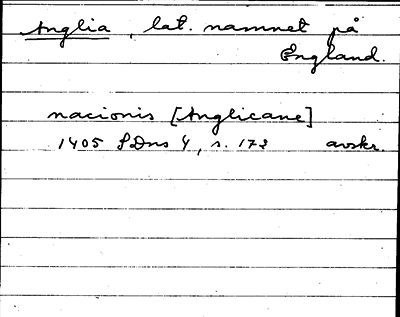 Anglia, lat. namnet på
England.
nacionis [Anglicane]
1405 SDns 4, s. 173 avskr.